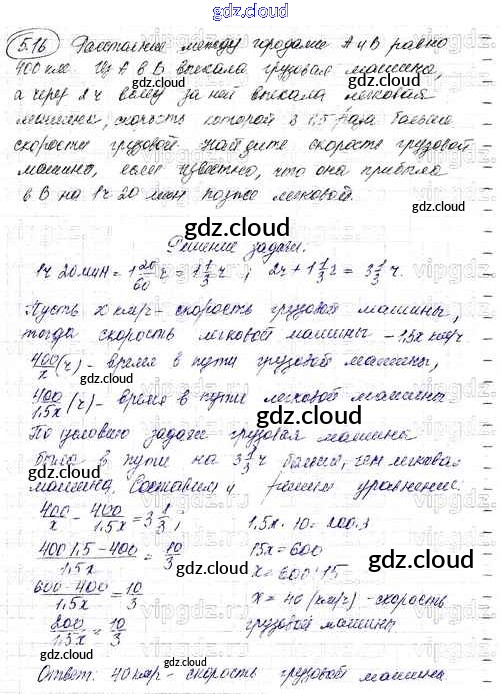 gdz.cloud
5.16 Расстояние между городами А и В равно
400 км. Из А в В выехала грузовая машина,
а через 2 ч вслед за ней выехала легковая
машина, скорость которой в 1,5 раза больше
скорости грузовой. Найдите скорость грузовой
машины, если известно, что она прибыла
в В на 1 ч 20 мин позже легковой.
gdz.cloud
Решение задачи.
1 ч 20 мин = 1 20/60 ч = 1 1/3 ч; 2 ч + 1 1/3 ч = 3 1/3 ч.
Пусть x км/ч - скорость грузовой машины,
тогда скорость легковой машины - 1,5x км/ч
400/x (ч) - время в пути грузовой машины,
400/1,5x (ч) - время в пути легковой машины
По условию задачи грузовая машина
была в пути на 3 1/3 ч больше, чем легковая
машина. Составим и решим уравнение:
400/x - 400/1,5x = 3 1/3;
(400·1,5-400)/1,5x = 10/3
(600-400)/1,5x = 10/3
200/1,5x = 10/3
1,5x · 10 = 200·3
15x = 600
x = 600:15
x = 40 (км/ч) - скорость
грузовой машины.
Ответ: 40 км/ч - скорость грузовой машины
gdz.cloud